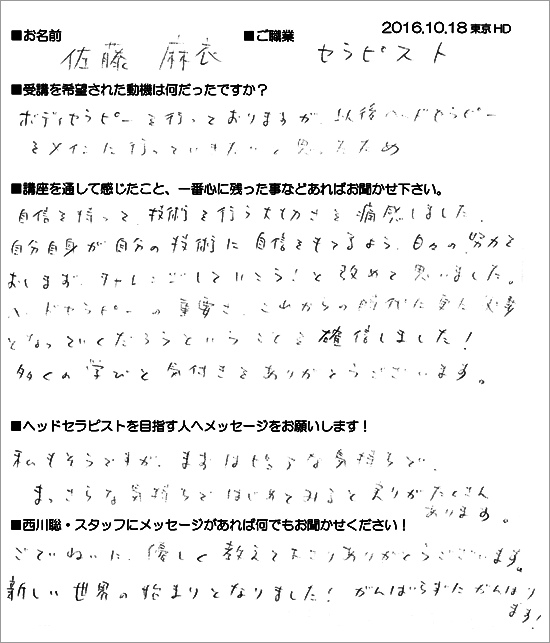 2016.10.18 東京HD
■お名前 ■ご職業
佐藤 麻衣 セラピスト
■受講を希望された動機は何だったですか？
ボディセラピーを行っておりますが、以後ヘッドセラピー
をメインに行っていきたいと思ったため
■講座を通して感じたこと、一番心に残った事などあればお聞かせ下さい。
自信を持って、技術を行う大切さを痛感しました。
自分自身が自分の技術に自信をもてるよう、日々の努力を
おしまず、チャレンジしていこう！と改めて思いました。
ヘッドセラピーの重要さ、これからの時代に更に必要
となっていくだろうということを確信しました！
多くの学びと気付きをありがとうございます。
■ヘッドセラピストを目指す人へメッセージをお願いします！
私もそうですが、まずはピュアな気持ちで、
まっさらな気持ちではじめてみると実りがたくさん
あります。
■西川聡・スタッフにメッセージがあれば何でもお聞かせください！
ごていねいに、優しく教えて下さりありがとうございます。
新しい世界の始まりとなりました！がんばらずにがんばり
ます！